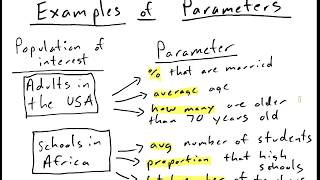 Examples of Parameters
Population of interest
Parameter
Adults in the USA
% that are married
average age
how many are older than 70 years old
Schools in Africa
avg number of students
proportion that high schools